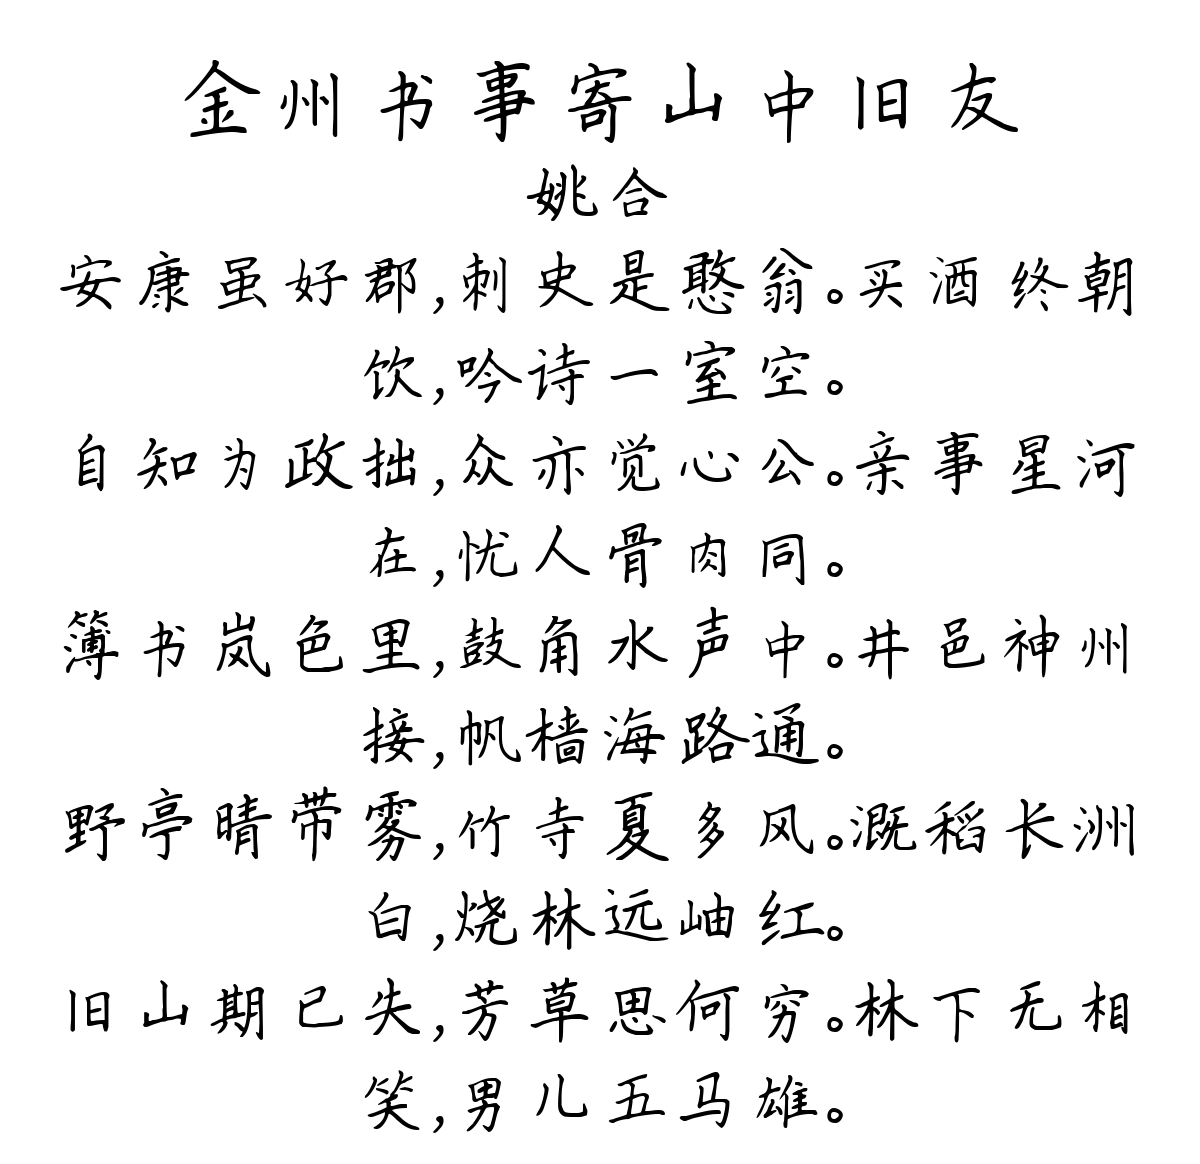 金州书事寄山中旧友
姚合
安康虽好郡,刺史是憨翁。买酒终朝
饮,吟诗一室空。
自知为政拙,众亦觉心公。亲事星河
在,忧人骨肉同。
簿书岚色里,鼓角水声中。井邑神州
接,帆樯海路通。
野亭晴带雾,竹寺夏多风。溉稻长洲
白,烧林远岫红。
旧山期已失,芳草思何穷。林下无相
笑,男儿五马雄。